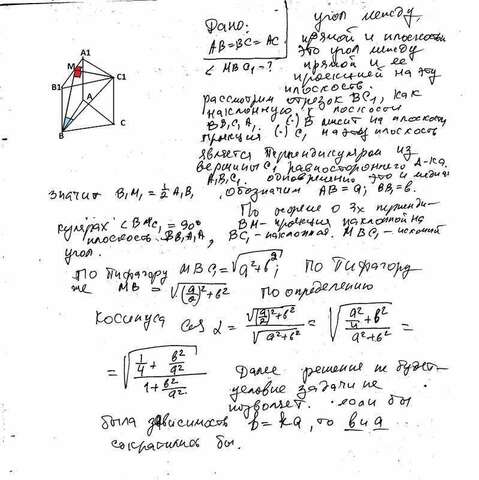 Дано:
AB=BC=AC
< MBC₁-?
угол между
прямой и плоскостью
это угол между
прямой и ее
проекцией на эту
плоскость.
рассмотрим отрезок BC₁, как
наклонную к плоскости
(·) B лежит на плоскости
(·) C₁ на эту плоскость
является перпендикуляром из
вершины C₁ равностороннего
A₁B₁C₁, одновременно это и медиа
значит B₁M₁ = ½ A₁B₁, обозначим AB = a; BB₁ = b.
По теореме о 3х перпенди-
кулярах = 90° BM - проекция наклонной на
плоскость BB₁A₁A, BC₁ - наклонная. MBC₁ - искомый
угол.
По Пифагору MBC₁ = √a²+b²; По Пифагору
же MB = √(a/2)²+b² По определению
косинуса cos α = √(a/2)²+b² / √a²+b² = √(a²/4+b²)/(a²+b²) =
= √(1/4 + b²/a²)/(1+b²/a²) Далее решение не будет
условие задачи не
позволяет. если бы
была зависимость b=ka, то b и a
сократились бы.
A1
M
B1
C1
A
B
C